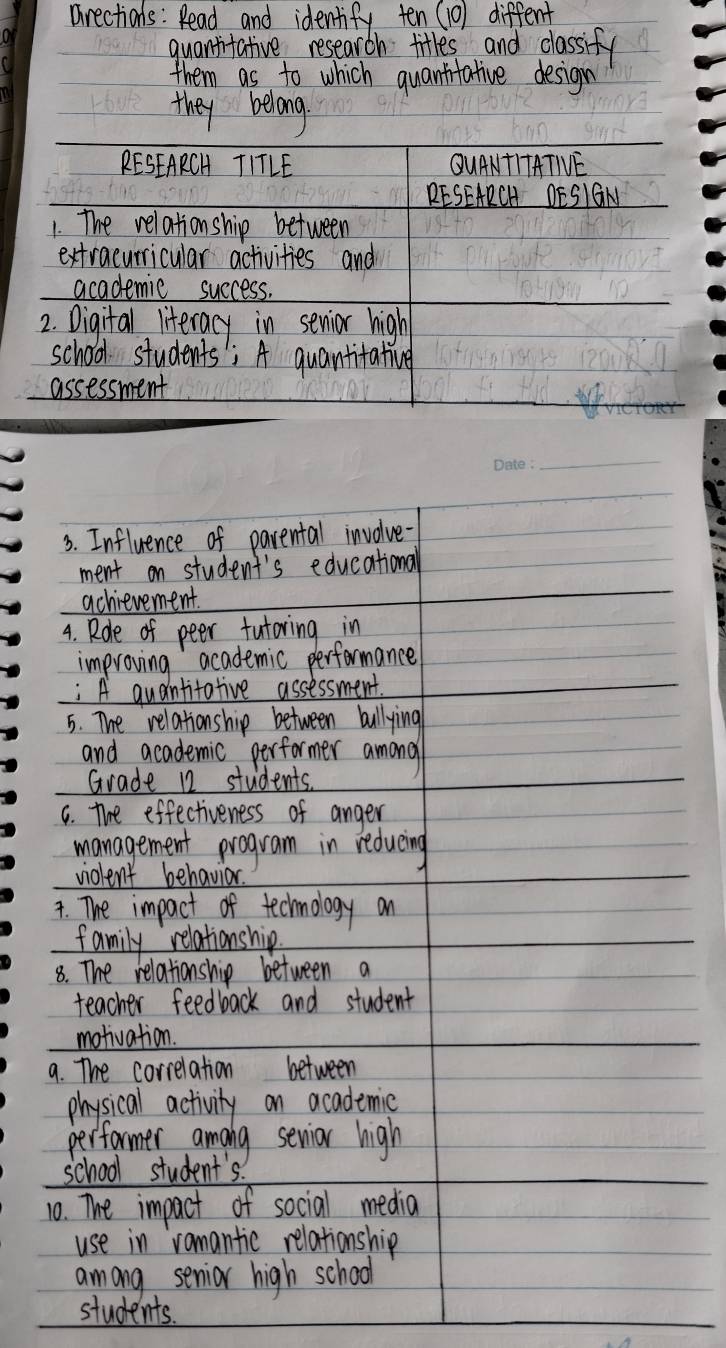 Directions: Read and identify ten (10) diffent
quantitative research titles and classify
them as to which quantitative design
they belong.
RESEARCH TITLE
QUANTITATIVE
RESEARCH DESIGN
1. The relationship between
extracurricular activities and
academic success.
2. Digital literacy in senior high
school students; A quantitative
assessment
VICTORY
Date:
3. Influence of parental involve-
ment on student's educational
achievement.
4. Role of peer tutoring in
improving academic performance
; A quantitative assessment.
5. The relationship between bullying
and academic performer among
Grade 12 students.
6. The effectiveness of anger
management program in reducing
violent behavior.
7. The impact of technology on
family relationship.
8. The relationship between a
teacher feedback and student
motivation.
9. The correlation between
physical activity on academic
performer among senior high
school student's.
10. The impact of social media
use in romantic relationship
among senior high school
students.